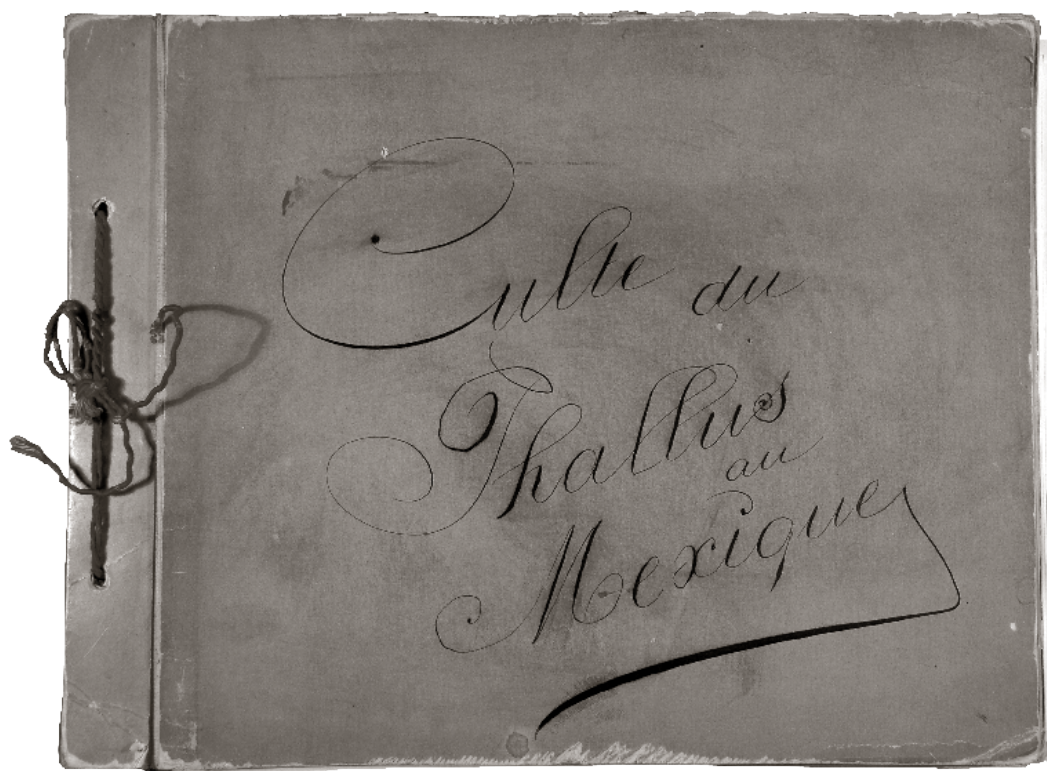 Culte du
Phallus
au
Mexique